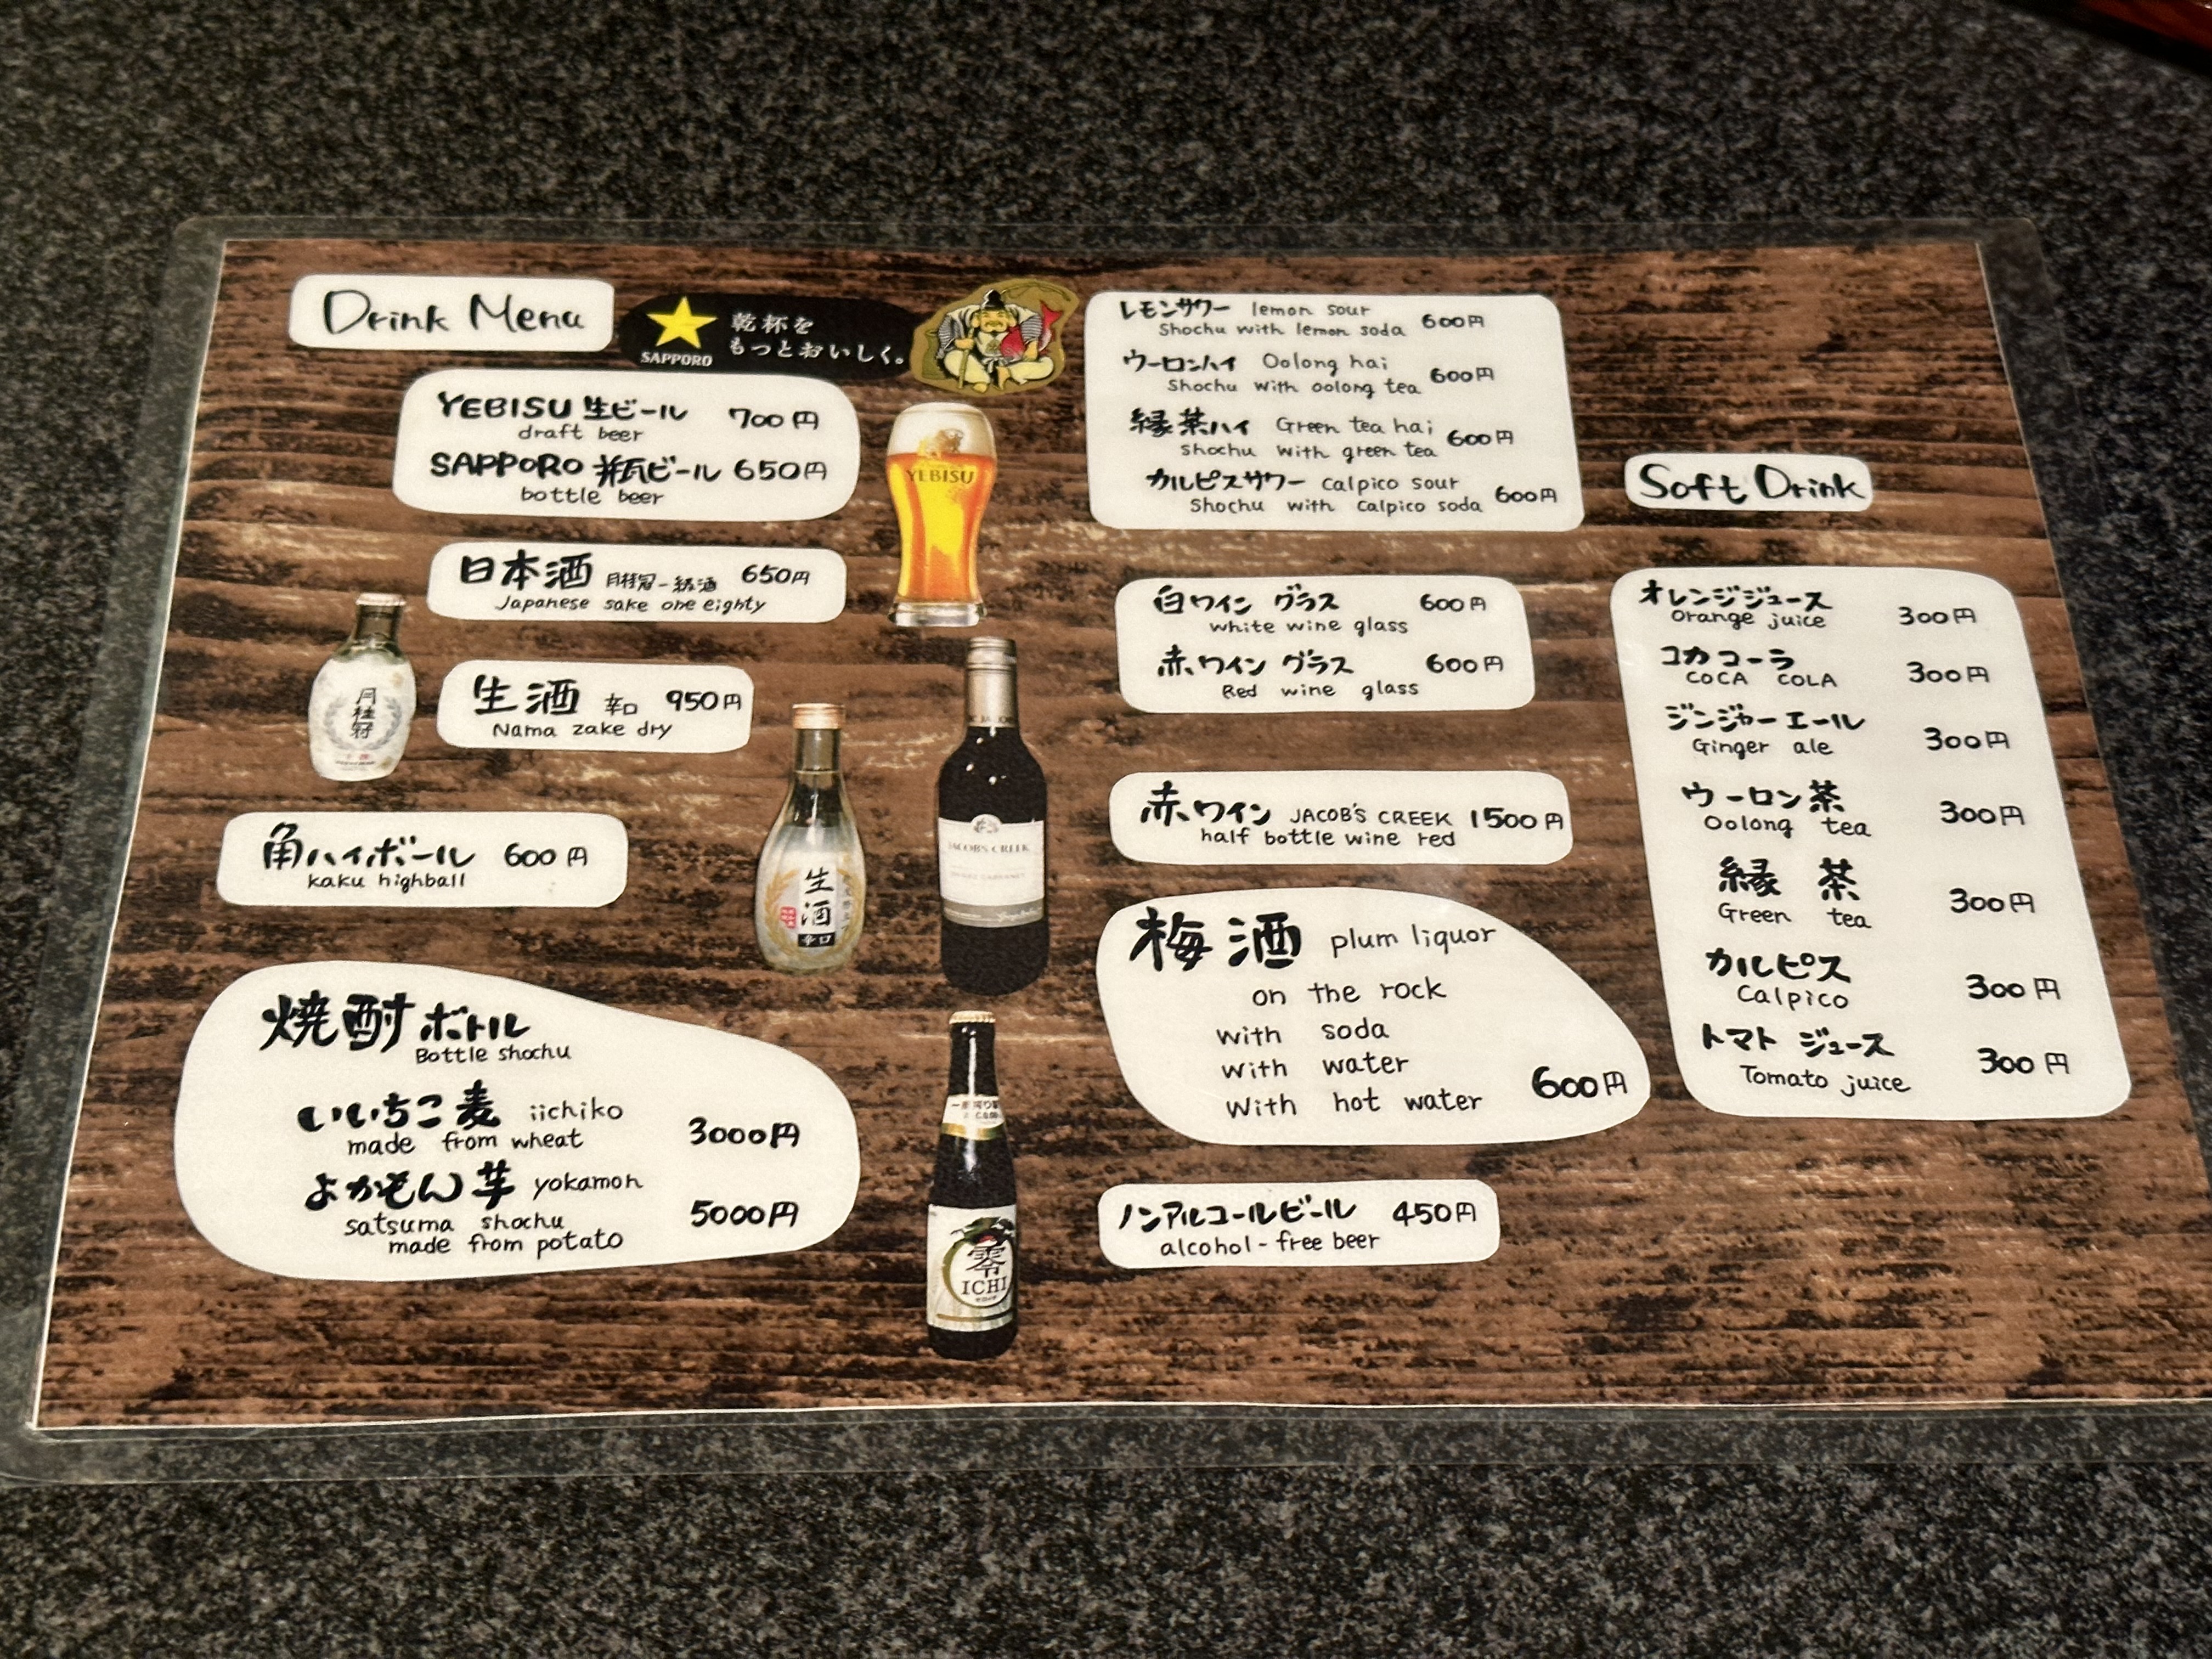 Drink Menu
SAPPORO
乾杯を
もっとおいしく。
YEBISU 生ビール 700円
draft beer
SAPPORO 瓶ビール 650円
bottle beer
YEBISU
日本酒 月桂冠一級酒 650円
Japanese sake one eighty
月桂冠
生酒 辛口 950円
Nama zake dry
生酒
辛口
角ハイボール 600円
kaku highball
JACOB'S CREEK
焼酎ボトル
Bottle shochu
いいちこ麦 iichiko
made from wheat 3000円
よかもん芋 yokamon
satsuma shochu 5000円
made from potato
零
ICHI
レモンサワー lemon sour
Shochu with lemon soda 600円
ウーロンハイ Oolong hai
Shochu with oolong tea 600円
緑茶ハイ Green tea hai
Shochu with green tea 600円
カルピスサワー calpico sour
Shochu with calpico soda 600円
白ワイン グラス 600円
white wine glass
赤ワイン グラス 600円
Red wine glass
赤ワイン JACOB'S CREEK 1500円
half bottle wine red
梅酒 plum liquor
on the rock
with soda
with water
with hot water 600円
ノンアルコールビール 450円
alcohol-free beer
Soft Drink
オレンジジュース 300円
Orange juice
コカコーラ 300円
COCA COLA
ジンジャーエール 300円
Ginger ale
ウーロン茶 300円
Oolong tea
緑茶 300円
Green tea
カルピス 300円
Calpico
トマトジュース 300円
Tomato juice